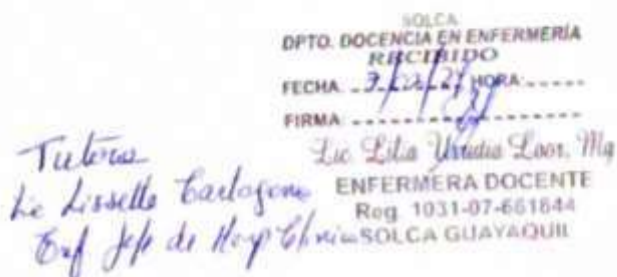 SOLCA
DPTO. DOCENCIA EN ENFERMERÍA
RECIBIDO
FECHA HORA
FIRMA
Lic. Lilia Loor, Mg
ENFERMERA DOCENTE
Reg. 1031-07-661844
SOLCA GUAYAQUIL
Tutora
Lic Lissette
Enf Jefe de Hosp